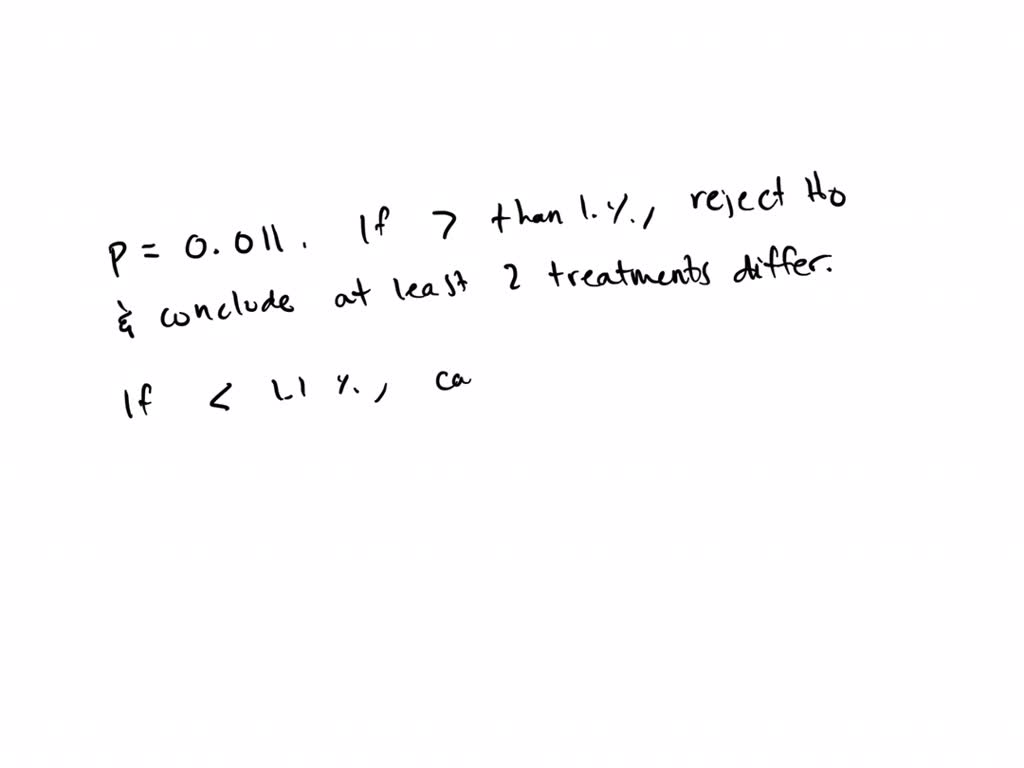 p = 0.011. If > than 1.%, reject H0
& conclude at least 2 treatments differ.
If < 1.1%, ca